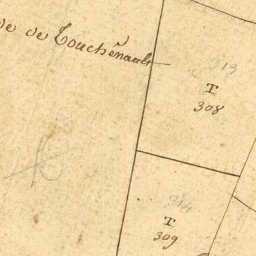 de Touchenault
213
T
308
T
309